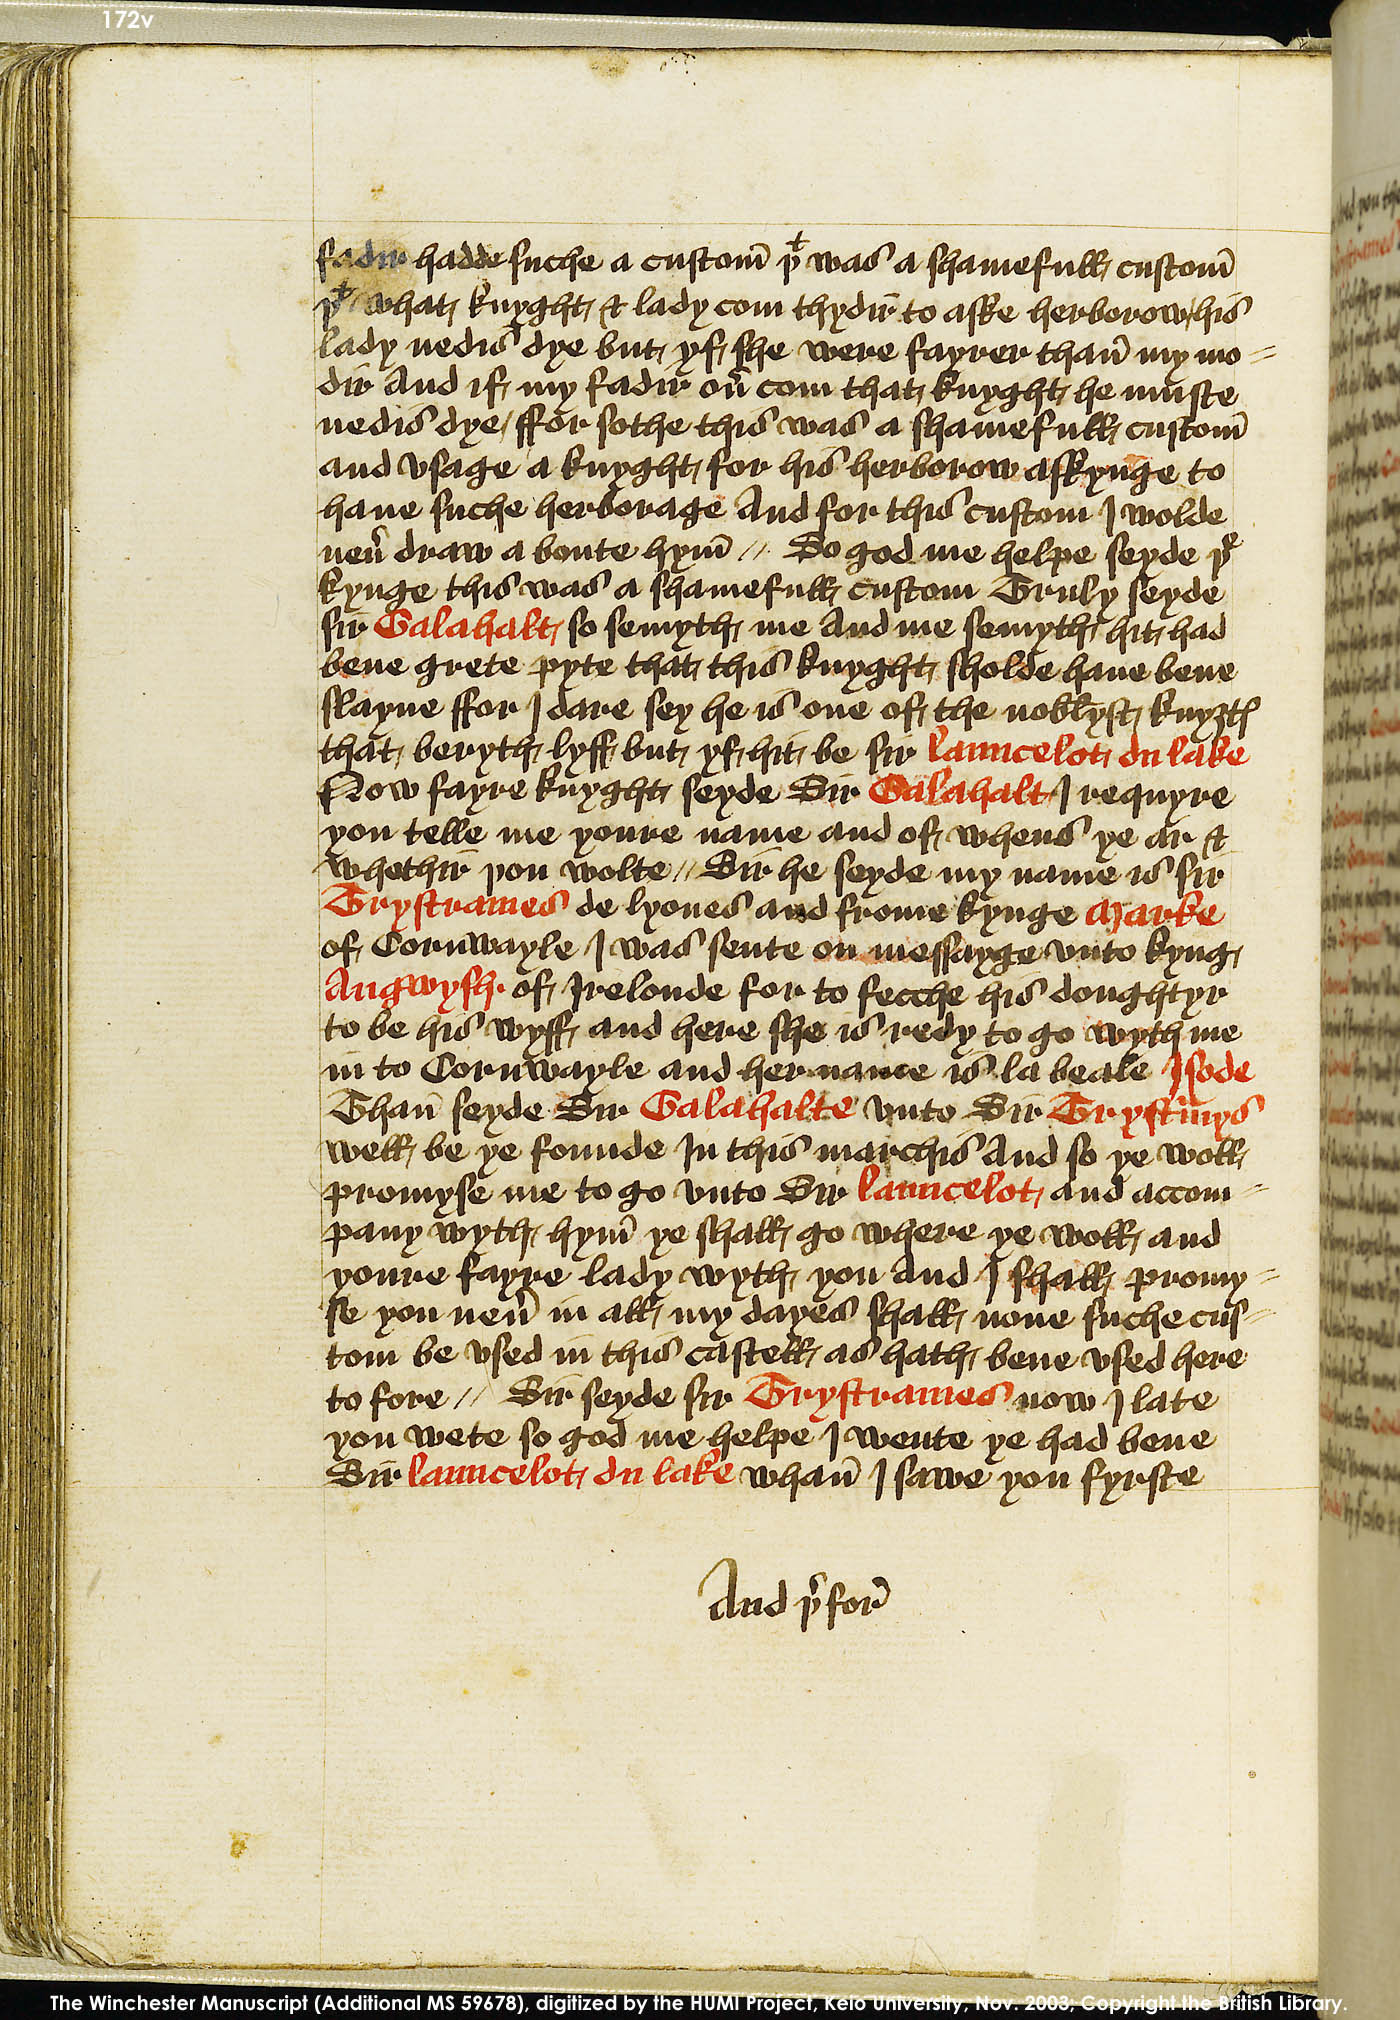 172v
fadir hadde suche a custom̄ þᵗ was a shamefull custom̄
þᵗ what knyght & lady com thydir to aske herborow / his
lady nedis dye but yf she were fayrer than̄ my mo=
dir And if my fadir ou̕ com that knyght he muste
nedis dye / ffor sothe this was a shamefull custom̄
and vsage a knyght for his herborow askynge to
haue suche herborage And for this custom I wolde
neu̕ draw a boute hym̄ // So god me helpe seyde þᵉ
kynge this was a shamefull custom Truly seyde
sir Galahalt so semyth me And me semyth hit had
bene grete pyte that this knyght sholde haue bene
slayne ffor I dare sey he is one of the noblyst knyȝtꝭ
that beryth lyff but yf hit be sir launcelot du lake
Now fayre knyght seyde Sir Galahalt I requyre
you telle me youre name and of whens ye ar &
whethir you wolte // Sir he seyde my name is sir
Trystrames de lyones and frome kynge Marke
of Cornwayle I was sente on messayge vnto kyng
Angwysh of Irelonde for to fecche his doughtyr
to be his wyff and here she is redy to go wyth me
in to Cornwayle and her name is la beale Isode
Than̄ seyde Sir Galahalte vnto Sir Trystrmys
well be ye founde In this marchis And so ye woll
promyse me to go vnto Sir launcelot and accom=
pany wyth hym̄ ye shall go where ye woll and
youre fayre lady wyth you And I shall promy=
se you neu̕ in all my dayes shall none suche cus=
tom be vsed in this castell as hath bene vsed here
to fore // Sir seyde sir Trystrames now I late
you wete so god me helpe I wente ye had bene
Sir launcelot du lake whan̄ I sawe you fyrste
And þ̕for̄
The Winchester Manuscript (Additional MS 59678), digitized by the HUMI Project, Keio University, Nov. 2003; Copyright the British Library.